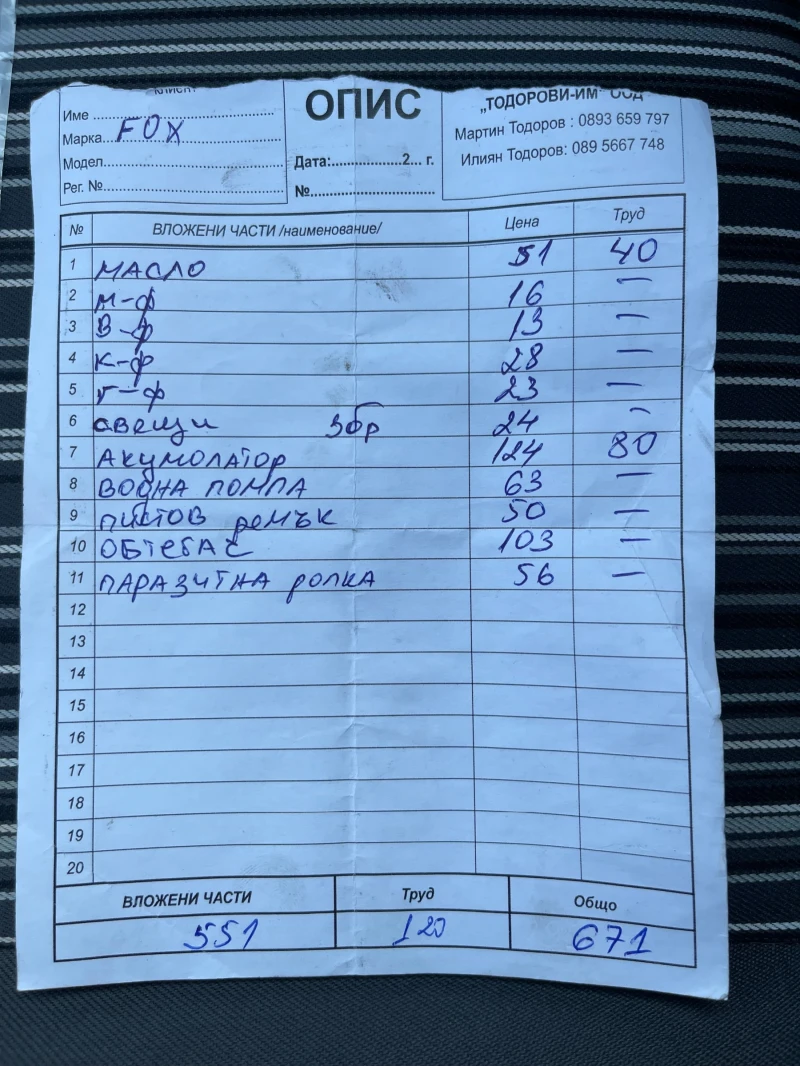 ОПИС
Име
Марка FOX
Модел
Рег. №
Дата: 2 г.
№
„ТОДОРОВИ-ИМ" ООД
Мартин Тодоров : 0893 659 797
Илиян Тодоров: 089 5667 748
№ ВЛОЖЕНИ ЧАСТИ /наименование/ Цена Труд
1 МАСЛО 51 40
2 М-ф 16 —
3 В-ф 13 —
4 К-ф 28 —
5 Г-ф 23 —
6 свещи 3бр 24 —
7 АКУМОЛАТОР 124 80
8 ВОДНА ПОМПА 63 —
9 ПИСТОВ ремък 50 —
10 ОБТЕГАЧ 103 —
11 ПАРАЗИТНА ролка 56 —
12
13
14
15
16
17
18
19
20
ВЛОЖЕНИ ЧАСТИ Труд Общо
551 120 671